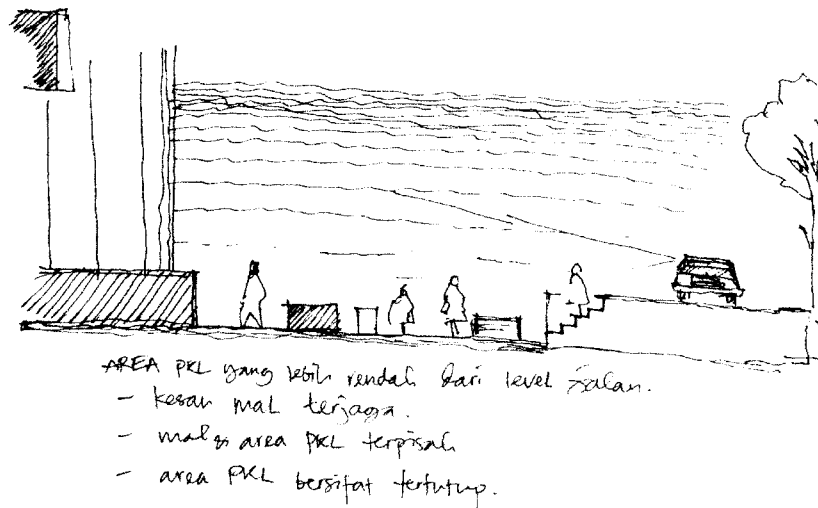 AREA PKL yang lebih rendah dari level jalan.
- kesan mal terjaga.
- mal & area PKL terpisah
- area PKL bersifat tertutup.